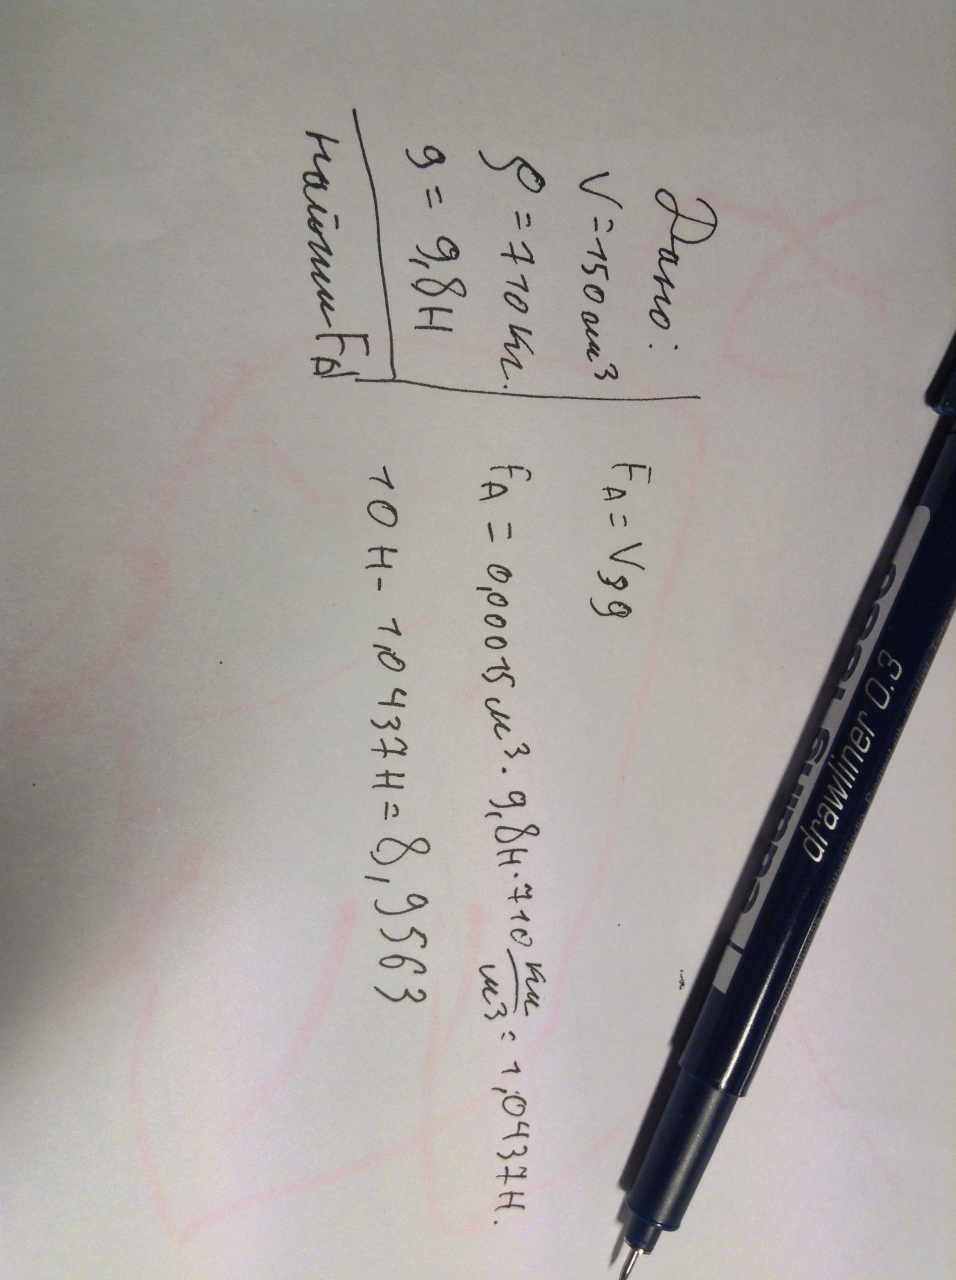 Дано:
V = 150 мм³
ρ = 710 кг.
g = 9,8 Н
Найти FA
FA = Vρg
FA = 0,00015 м³ · 9,8Н · 710 кг/м³ = 1,0437Н.
10 Н - 1,0437Н = 8,9563
edding 1880
drawliner 0.3